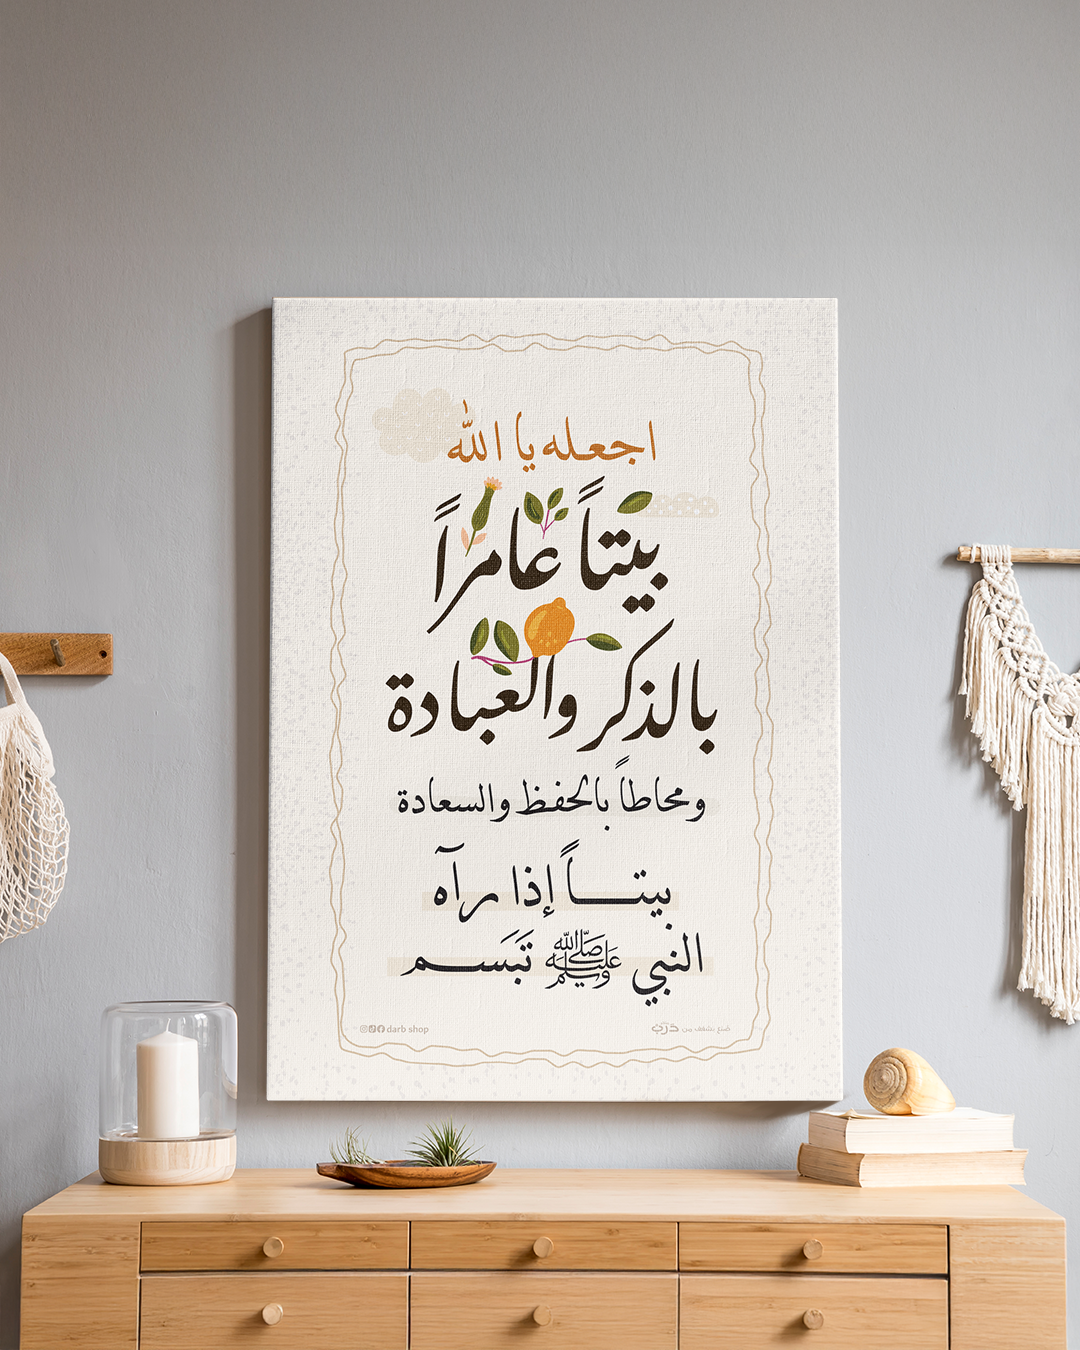 اجعله يا الله
بيتاً عامراً
بالذكر والعبادة
ومحاطاً بالحفظ والسعادة
بيتـــاً إذا رآه
النبي ﷺ تَبَسَـــم
darb shop
صُنع بشغف من درب